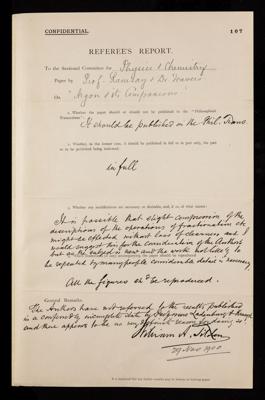 CONFIDENTIAL.
107
REFEREE'S REPORT.
To the Sectional Committee for Physics & Chemistry
Paper by Prof. Ramsay & Dr Travers
On "Argon & its Companions"
1. Whether the paper should or should not be published in the "Philosophical
Transactions"
It should be published in the Phil. Trans.
2. Whether, in the former case, it should be published in full or in part only, the part
or to be published being indicated.
in full
3. Whether any modifications are necessary or desirable, and, if so, of what nature:
It is possible that slight compression of the
descriptions of the operations of fractionation etc
might be effected without loss of clearness and I
would suggest this for the consideration of the Authors
but as the subject is new and the work not likely to
be repeated by many people considerable detail is necessary.
accompanying the paper should be reproduced
All the figures shd be reproduced.
General Remarks.
The Authors have not referred to the results published
in a
and there appears to be no
William A. Tilden
29 Nov 1900